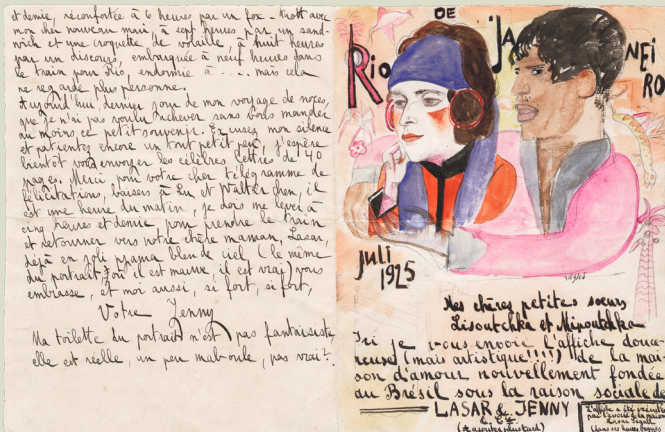 et demie, réconfortée à 6 heures par un fox-trott avec
mon cher nouveau mari, à sept heures par un sand-
wich et une croquette de volaille, à huit heures
par un discours, embarquée à neuf heures dans
le train pour Rio, endormie à ..... mais cela
ne regarde plus personne.
Aujourd'hui, dernier jour de mon voyage de noces,
que je n'ai pas voulu achever sans vous mander
au moins ce petit souvenir. Excusez mon silence
et patientez encore un tout petit peu, j'espère
bientôt vous envoyer les célèbres lettres de 40
pages. Merci pour votre cher télégramme de
félicitations, baisers à Lu et Walterchen, il
est une heure du matin, je dois me lever à
cinq heures et demie pour prendre le train
et retourner vers notre chère maman, Lasar,
déjà en joli pyjama bleu de ciel (le même
du portrait, où il est mauve, il est vrai) vous
embrasse, et moi aussi, si fort, si fort,
Votre Jenny
Ma toilette du portrait n'est pas fantaisiste,
elle est réelle, un peu maboule, pas vrai?
RIO DE JANEIRO
Juli
1925
Mes chères petites sœurs
Lisoutchka et Mipoutchka
Ici je vous envoie l'affiche douce-
reuse (mais artistique!!!!) de la mai-
son d'amour nouvellement fondée
au Brésil sous la raison sociale de
LASAR & JENNY
& Cie
(à ajouter plus tard)
L'affiche a été
par l'associé de la maison
Lasar Segall
(dans ses heures